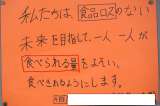 私たちは、食品ロスのない
未来を目指して、一人一人が
食べられる量をよそい、
食べきれるようにします。